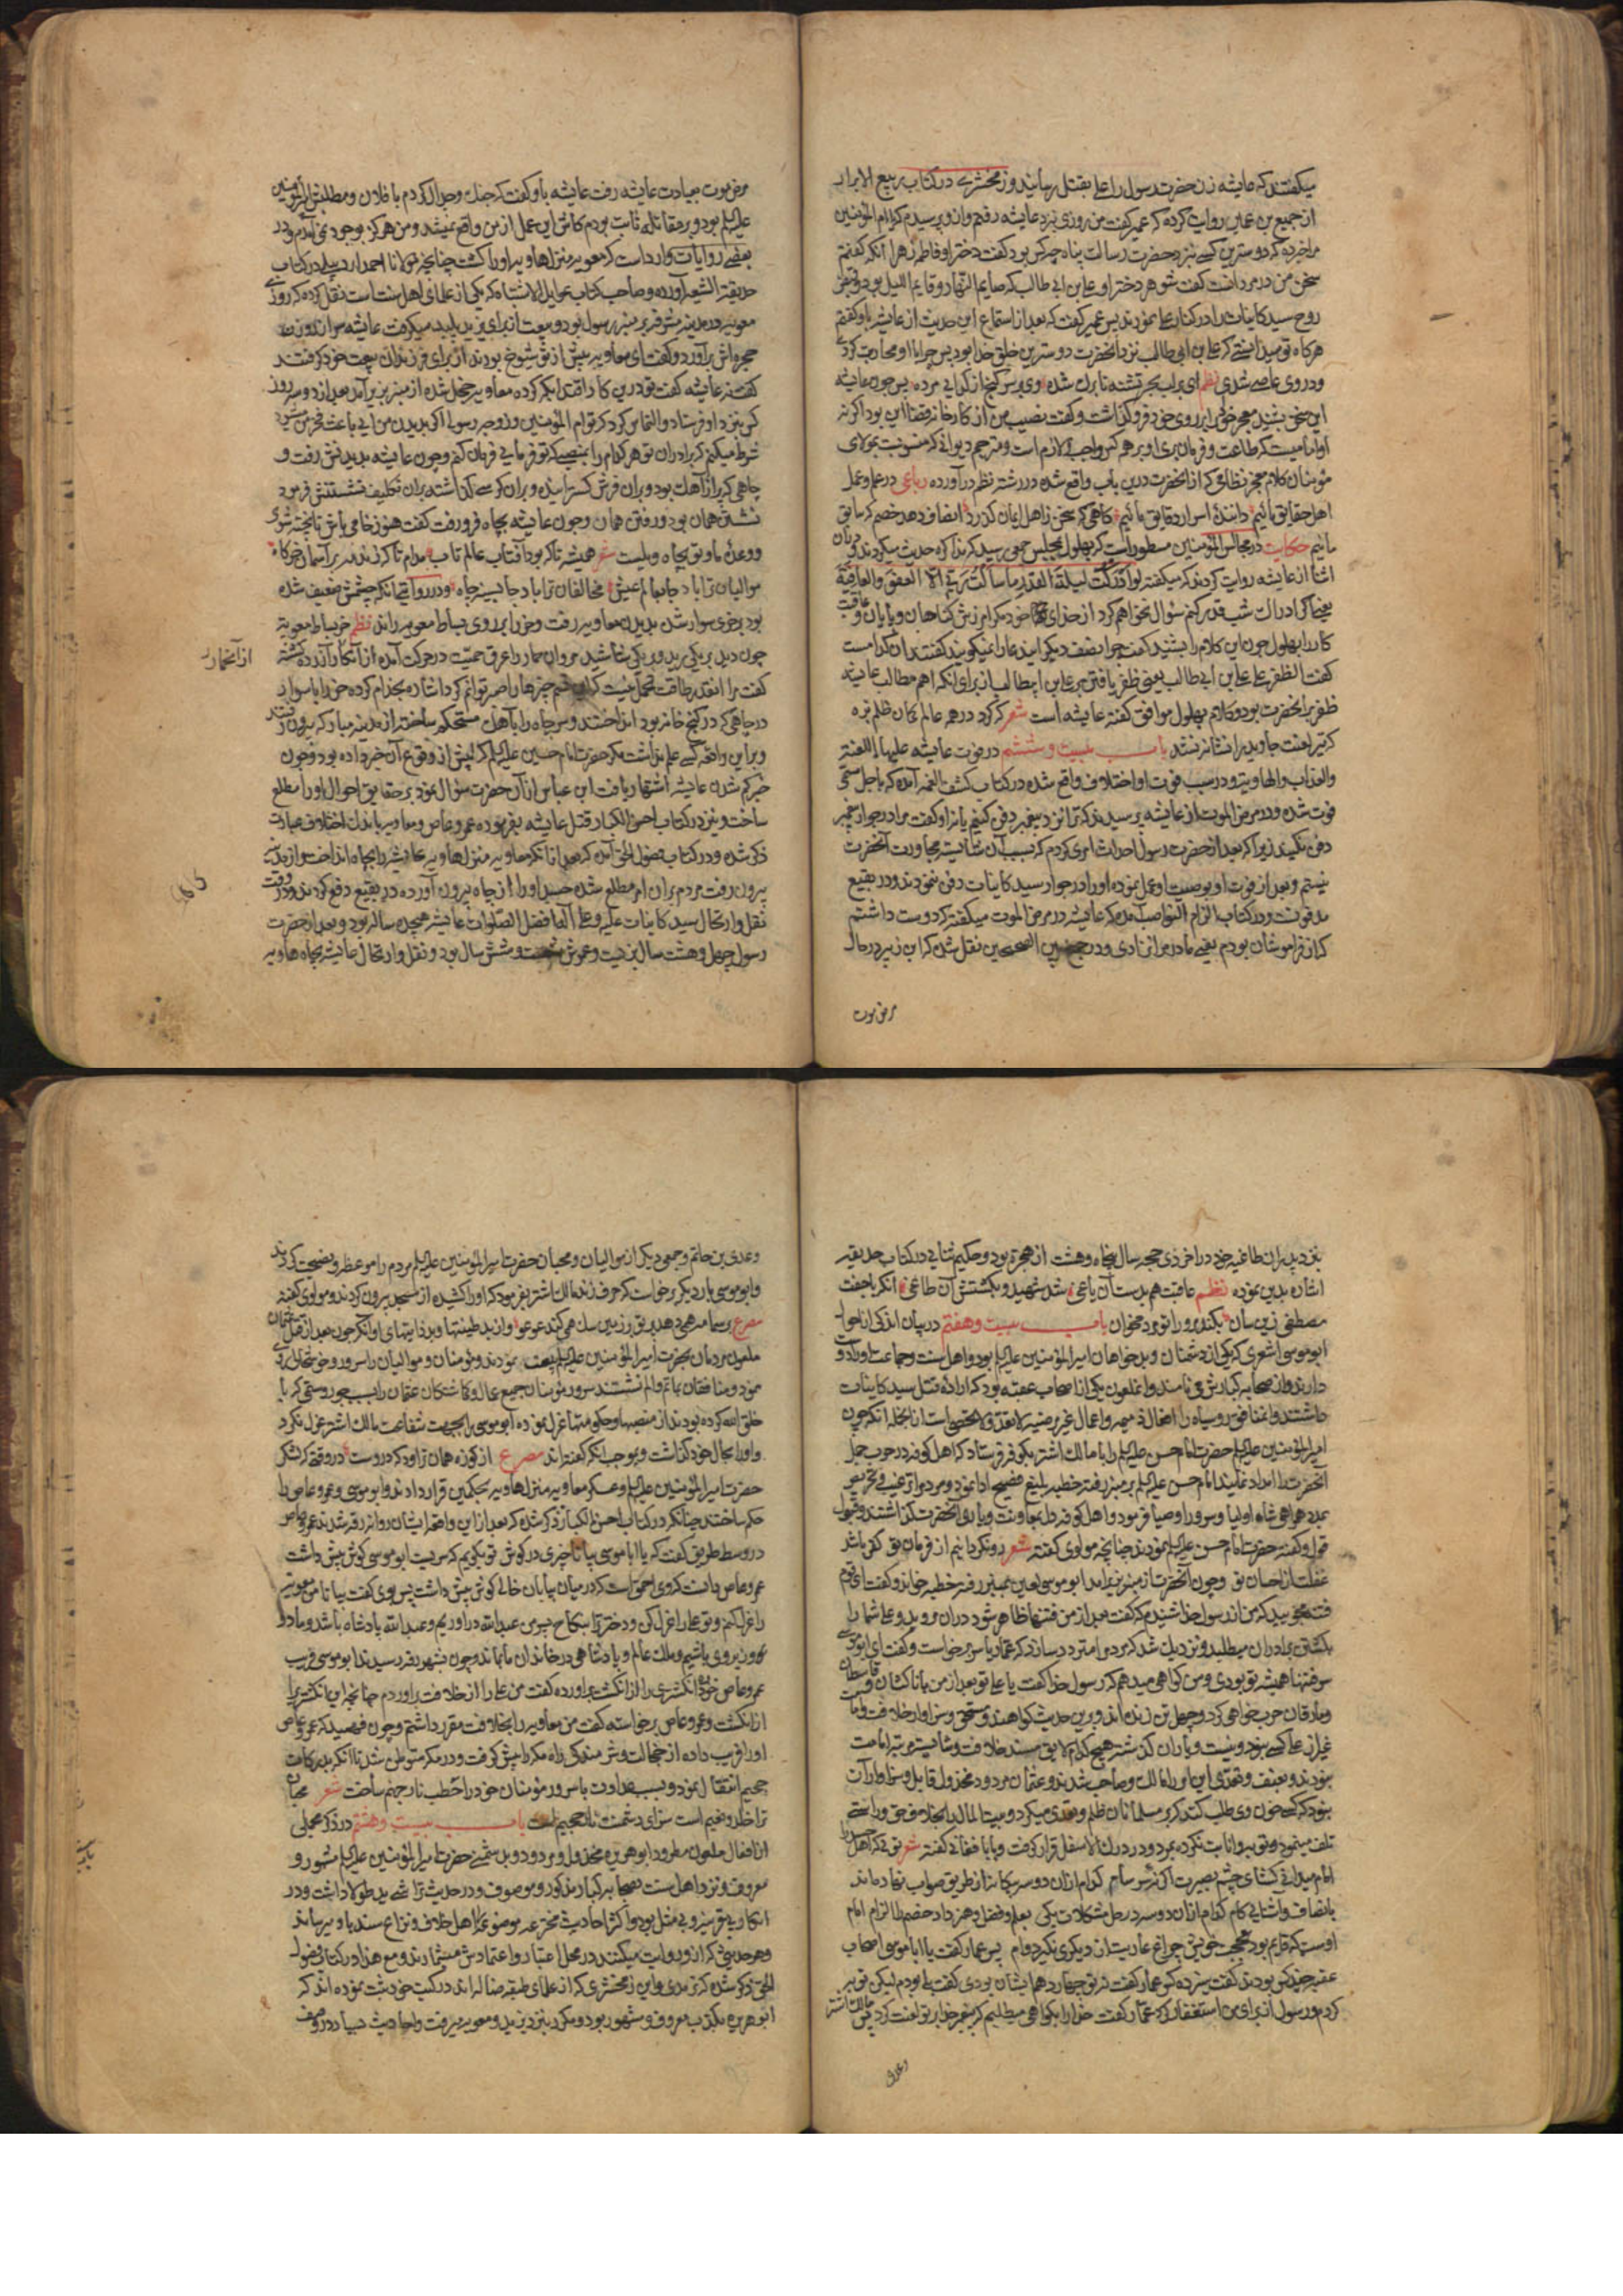 میگفتند که عایشه زن حضرت رسول را علی بقتل رسانید و زمخشری در کتاب ربیع الابرار
از جمیع بن عمیر روایت کرده که عمیر گفت من روزی نزد عایشه رفتم و از و پرسیدم که ای ام المؤمنین
مرا خبر ده که دوسترین کسی نزد حضرت رسالت پناه چه کس بود گفت دختر او فاطمه زهرا آنکه گفتم
سخن من در مردانست گفت شوهر دختر او علی بن ابی طالب که صایم النهار و قایم اللیل بود
روح سید کاینات در کنار علی بود پس عمیر گفت که بعد از استماع این حدیث از عایشه باو گفتم
هرگاه تو میدانستی که علی بن ابی طالب نزد آنحضرت دوسترین خلق خدا بود پس چرا با او محاربه کردی
و در وی عاصی شدی نظم ای بر لب بحر تشنه تا برک شده وی بر سر گنج از گدایی مرده پس چون عایشه
این سخن بشنید معجر خود بر روی خود فرو گذاشت و گفت نصیب من از کارخانه قضا این بود اگر نه
او امامیست که طاعت و فرمان بری او بر همه کس واجب و لازم است و مترجم دیوانی که منسوبست بمولای
مؤمنان کلام معجز نظامی که از آنحضرت درین باب واقع شده در رشته نظم در آورده رباعی در علم و عمل
اهل حقایق مائیم دانندۀ اسرار دقایق مائیم کاهی که سخن ز اهل ایمان گذرد انصاف دهد خصم که سابق
مائیم حکایت در مجالس المؤمنین مسطور است که بهلول بمجلس جمعی رسید که مذاکره حدیث میکردند و در میان
اثنا از عایشه روایت کردند که میگفته لو ادرکت لیلة القدر ما سألت ربی الا العفو والعافیة
یعنی اگر ادراک شب قدر کنم سؤال نخواهم کرد از خدای خود مگر امرزش گناهان و پایان عافیت
کار را بهلول چون این کلام را بشنید گفت چرا نصف دیگر این دعا را نمیگویند گفتند آن کدامست
گفت الظفر علی علی بن ابی طالب یعنی ظفر یافتن بر علی بن ابیطالب از برای آنکه اهم مطالب عایشه
ظفر بر آنحضرت بود و کلام بهلول موافق گفته عایشه است شعر که کرد در همه عالم کمان ظلم بزه
که تیر لعنت جاوید را نشانه نشد باب بیست و ششم در فوت عایشه علیها اللعنة
والعذاب والهاویة و در سبب فوت او اختلاف واقع شده در کتاب کشف الغمه آمده که باجل مسمی
فوت شده و در مرض الموت از عایشه پرسیدند که ترا نزد پیغمبر دفن کنیم یا نه او گفت مرا در جوار پیغمبر
دفن نکنید زیرا که بعد از حضرت رسول احداث امری کردم که بسبب آن شایسته مجاورت آنحضرت
نیستم و بعد از فوت او بوصیت او عمل نموده او را در جوار سید کاینات دفن ننمودند و در بقیع
مدفونست و در کتاب الزام النواصب آمده که عایشه در مرض الموت میگفته که دوست داشتم
که از فراموشان بودم یعنی مادر مرا نزادی و در جمع بین الصحیحین نقل شده که ابن زبیر در حال
مرض موت
مرض موت بعیادت عایشه رفت عایشه باو گفت که جنگ و جدال کردم با فلان و مطلبش امیر المؤمنین
علیه السلم بود و بر مقاتله ثابت بودم کاش این عمل از من واقع نمیشد و من هرگز بوجود نمی آمدم و در
بعضی روایات وارد است که معویه منزلها ویه او را کشت چنانچه مولانا احمد اردبیلی در کتاب
حدیقة الشیعه آورده و صاحب کتاب عجایل الاشتباه که یکی از علمای اهل سنت است نقل کرده که روزی
معویه در مدینه مشرفه بر منبر رسول بود و بیعت از برای یزید پلید میگرفت عایشه سر از درون
حجره اش برآورد و گفت ای معاویه پیش از تو شیوخ بودند از برای فرزندان بیعت خود گرفتند
گفت نه عایشه گفت تو درین کار اقتدا بکه کرده معاویه خجل شده از منبر بزیر آمد بعد از دو سه روز
کس نزد او فرستاد و التماس کرد که تو ام المؤمنین و زوجه رسولی اگر بدیدن من آیی باعث فخر من میشود
شرط میکنم که برادران تو هر کدام را بمنصبی که تو فرمایی فرمان کنم و چون عایشه بدیدنش رفت و
چاهی که پر از آهک بود و بران فرش گسترانیده و بران کرسی گذاشته بران تکلیف نشستنش فرمود
نشستن همان بود و رفتن همان و چون عایشه بچاه فرو رفت گفت هنوز خامی باش تا پخته شوی
و وعدۀ ما و تو بچاه ویلست شعر همیشه تا که بود آفتاب عالم تاب مدام تا که زند مه بر آسمان خرگاه
موالیان ترا باد جا بعالم عیش مخالفان ترا باد جا بسینه چاه و در روایتی آنکه چشمش ضعیف شده
بود بر خری سوار شده بدیدن معاویه رفت و خر را بر روی بساط معویه راند نظم خر بساط معویه
چون دید بر یکی رید و بر یکی شاشید مروان حمار را عرق حمیت در حرکت آمده از آنکار آزرده گشته
از آنحمار
گفت مرا انقدر طاقت تحمل نیست
در چاهی که در کنج خانه بود انداختند و سر چاه را با آهک مستحکم ساخته از مدینه مبارکه بیرون رفتند
و بر این واقعه کسی علم نداشت مگر حضرت امام حسین علیه السلم که پیش از وقوع آن خبر داده بود و چون
خبر گم شدن عایشه اشتهار یافت ابن عباس از آن حضرت سؤال نمود بر حقایق احوال او را مطلع
ساخت و نیز در کتاب احسن الکبار قتل عایشه بفرموده عمرو عاص و معاویه باندک اختلاف عبارت
ذکر شده و در کتاب فصول الحق آمده که بعد از آنکه معاویه منزلها ویه عایشه را بچاه انداخت و از مدینه
بیرون رفت مردم بران امر مطلع شده جسد او را از چاه بیرون آورده در بقیع دفع کردند و در وقت
نقل و ارتحال سید کاینات علیه و علی آله افضل الصلوات عایشه هجده ساله بود و بعد از حضرت
رسول چهل و هشت سال بزیست و عمرش شصت و شش سال بود و نقل و ارتحال عایشه بچاه هاویه
نزد پدران طاغیه خود در آخر ذی حجه سال پنجاه و هشت از هجرة بود و حکیم ثنایی در کتاب حدیقه
اشاره بدین نموده نظم عاقبت هم بدست آن باغی شد شهید و بکشتش آن طاغی آنکه با جفت
مصطفی زین سان بکند مرو را تو مرد مخوان باب بیست و هفتم در بیان اندکی از احوال
ابو موسی اشعری که یکی از دشمنان و بدخواهان امیر المؤمنین علیه السلم بود و اهل سنت و جماعت او را دوست
دارند و از صحابه کبارش می نامند و انملعون یکی از اصحاب عقبه بود که اراده قتل سید کاینات
داشتند و آنمنافق روسیاه را افعال ذمیمه و اعمال غیر مرضیه لا تعد و لا تحصی است از انجمله آنکه چون
امیر المؤمنین علیه السلم حضرت امام حسن علیه السلم را با مالک اشتر بکوفه فرستاد که اهل کوفه در حرب جمل
آنحضرت را امداد نمایند امام حسن علیه السلم بر منبر رفته خطبه بلیغ فصیح ادا نمود و مردم را ترغیب و تحریص
بمدد همراهی شاه اولیا و سرور اوصیا فرمود و اهل کوفه دل بمعاونت و یاری آنحضرت گذاشتند و قبول
قول و گفته حضرت امام حسن علیه السلم نمودند چنانچه مولوی گفته شعر رو نگردانیم از فرمان تو کفر باشد
غفلت از احسان تو و چون آنحضرت از منبر بزیر آمد ابو موسی لعین بمنبر رفته خطبه خواند و گفت ای قوم
فتنه مجویید که من از رسول خدا شنیدم که گفت بعد از من فتنها ظاهر شود دران مروید و علی شما را
بکشتن برادران میطلبد و نزدیک شد که مردم را متردد سازد که عمار یاسر برخواست و گفت ای ابو موسی
سر فتنها همیشه تو بودی و من گواهی میدهم که رسول خدا گفت یا علی تو بعد از من با ناکثان و قاسطان
و مارقان حرب خواهی کرد و چهل تن زنده اند و برین حدیث گواهند و مستحق و سزاوار خلافت و امامت
غیر از علی کسی نبود و نیست و یاران گذشته هیچ کدام لایق مسند خلافت و شایسته مرتبه امامت
نبودند و بعنف و تعدی این امر را مالک و صاحب شدند و عثمان مردود مخذول قابل و سزاوار آن
نبود که کسی خون وی طلب کند که بر مسلمانان ظلم و تعدی میکرد و بیت المال را بخلاف حق و راستی
تلف مینمود و توبه و انابت نکرده بمرد و در درک الاسفل قرار گرفت و بابا فغانی گفته شعر
امام میدانی کشای چشم بصیرت اگر نه سامری کدام ازان دو سه بیگانه از طریق صواب نهاد ماند
بانصاف و آشنایی کام کدام ازان دو سه در حل مشکلات یکی بعلم و فضل و هنر داد خصم را الزام امام
اوست که قایم بود بحجت خویش چراغ عاریت از دیگری نگیرد وام پس عمار گفت یا ابا موسی اصحاب
عقبه چند کس بودند گفت سیزده کس عمار گفت نه تو چهاردهم ایشان بودی گفت بلی بودم لیکن توبه
کردم و رسول از برای من استغفار کرد عمار گفت خدا را بگواهی میطلبم که پیغمبر خدا بر تو لعنت کرد پس مالک اشتر
وعدی
وعدی بن حاتم و جمعی دیگر از موالیان و محبان حضرت امیر المؤمنین علیه السلم مردم را موعظه و نصیحت کردند
و ابو موسی بار دیگر برخواست که حرف زند مالک اشتر بفرمود که او را کشیده از مسجد بیرون کردند و مولوی گفته
مصرع بر سماء مه می دهد پرتو زرین سک همی کند عوعو و از بد طینتها و بد ذاتیهای او آنکه چون بعد از قتل عثمان
ملعون مردمان بحضرت امیر المؤمنین علیه السلم بیعت نمودند و مؤمنان و موالیان را سرور و خوشحالی روی
نمود و منافقان بماتم و الم نشستند سرور مؤمنان جمیع عمال و گماشتگان عثمان را بسبب جور و ستمی که با
خلق الله کرده بودند از منصبها و حکومتها عزل نموده ابو موسی را بجهت شفاعت مالک اشتر عزل نکرد
و او را بحال خود گذاشت و بموجب آنکه گفته اند مصرع از کوزه همان تراود که دروست در وقتی که لشکر
حضرت امیر المؤمنین علیه السلم و عسکر معاویه منزلها ویه حکمین قرار دادند و ابو موسی و عمرو عاص را
حکم ساختند چنانکه در کتاب احسن الکبار ذکر شده که بعد از این واقعه ایشان روانه رقه شدند عمرو عاص
در وسط طریق گفت که یا ابا موسی بیا تا چیزی در گوش تو بگویم که سریست ابو موسی گوش پیش داشت
عمرو عاص دانست که وی احمق است که در میان بیابان خالی گوش پیش داشت پس بوی گفت بیا تا من معویه
را عزل کنم و تو علی را عزل کن و دختر ترا بنکاح پسر من عبدالله در آوریم و عبدالله پادشاه باشد و ما دو
وزیر وی باشیم و ملک عالم و پادشاهی در خاندان ما بماند و چون بشهر رقه رسیدند ابو موسی فریب
عمرو عاص خورده انگشتری را از انگشت برآورده گفت من علی را از خلافت برآوردم چنانچه این انگشتر را
از انگشت و عمرو عاص برخواسته گفت من معاویه را بخلافت مقرر داشتم و چون فهمید که عمرو عاص
او را فریب داده از خجالت و شرمندگی راه مکه را پیش گرفت و در مکه متوطن شد تا آنکه بدرکات
جحیم انتقال نمود و بسبب عداوت با سرور مؤمنان خود را حطب نار جهنم ساخت شعر محبان
ترا خلد و نعیم است سزای دشمنت نار جحیم است باب بیست و هشتم در ذکر مجملی
از افعال ملعون مطرود ابو هریره مخذول و مردود و بد شمنی حضرت امیر المؤمنین علیه السلم مشهور و
معروف و نزد اهل سنت بصحابه کبار مذکور و موصوف و در حدیث تراشی ید طولا داشت و در
انکار بی قرینه و بی مثل بود و اکثر احادیث مخترعه موضوعه را اهل خلاف و نزاع سند باو میرسانند
و هر حدیثی که ازو روایت میکنند در محل اعتبار و اعتمادش میشمارند و مع هذا در کتاب فصول
الحق ذکر شده که ترمذی و ابن زمخشری که از علمای طبقه ضاله اند در کتب خود ثبت نموده اند که
ابو هریره بکذب معروف و مشهور بود و مکرر نزد یزید و معویه میرفت و احادیث بسیار دروغ